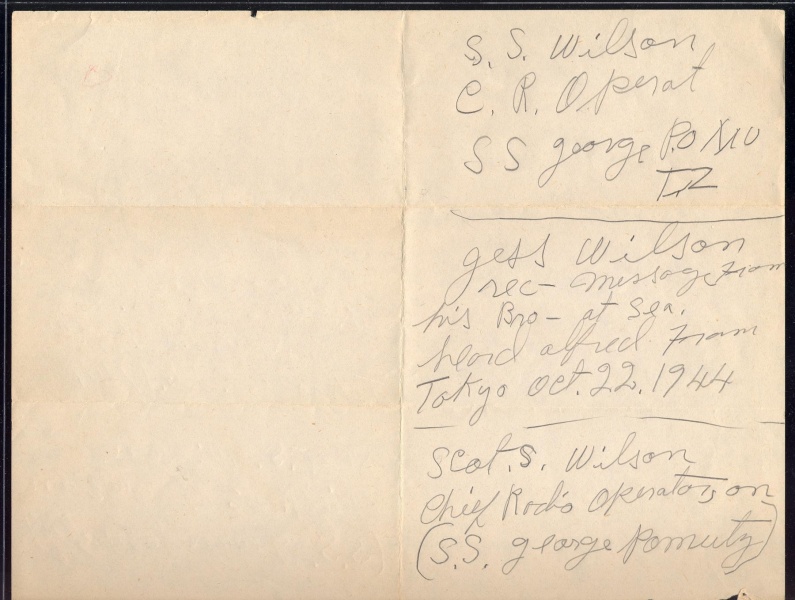 S. S. Wilson
C. R. Operat
S S george
TZ
gess Wilson
rec- message from
his Bro- at Sea.
heard alfred from
Tokyo Oct. 22. 1944
Scot. S. Wilson
Chief Radio Operator on
(S.S. george Pomutz)